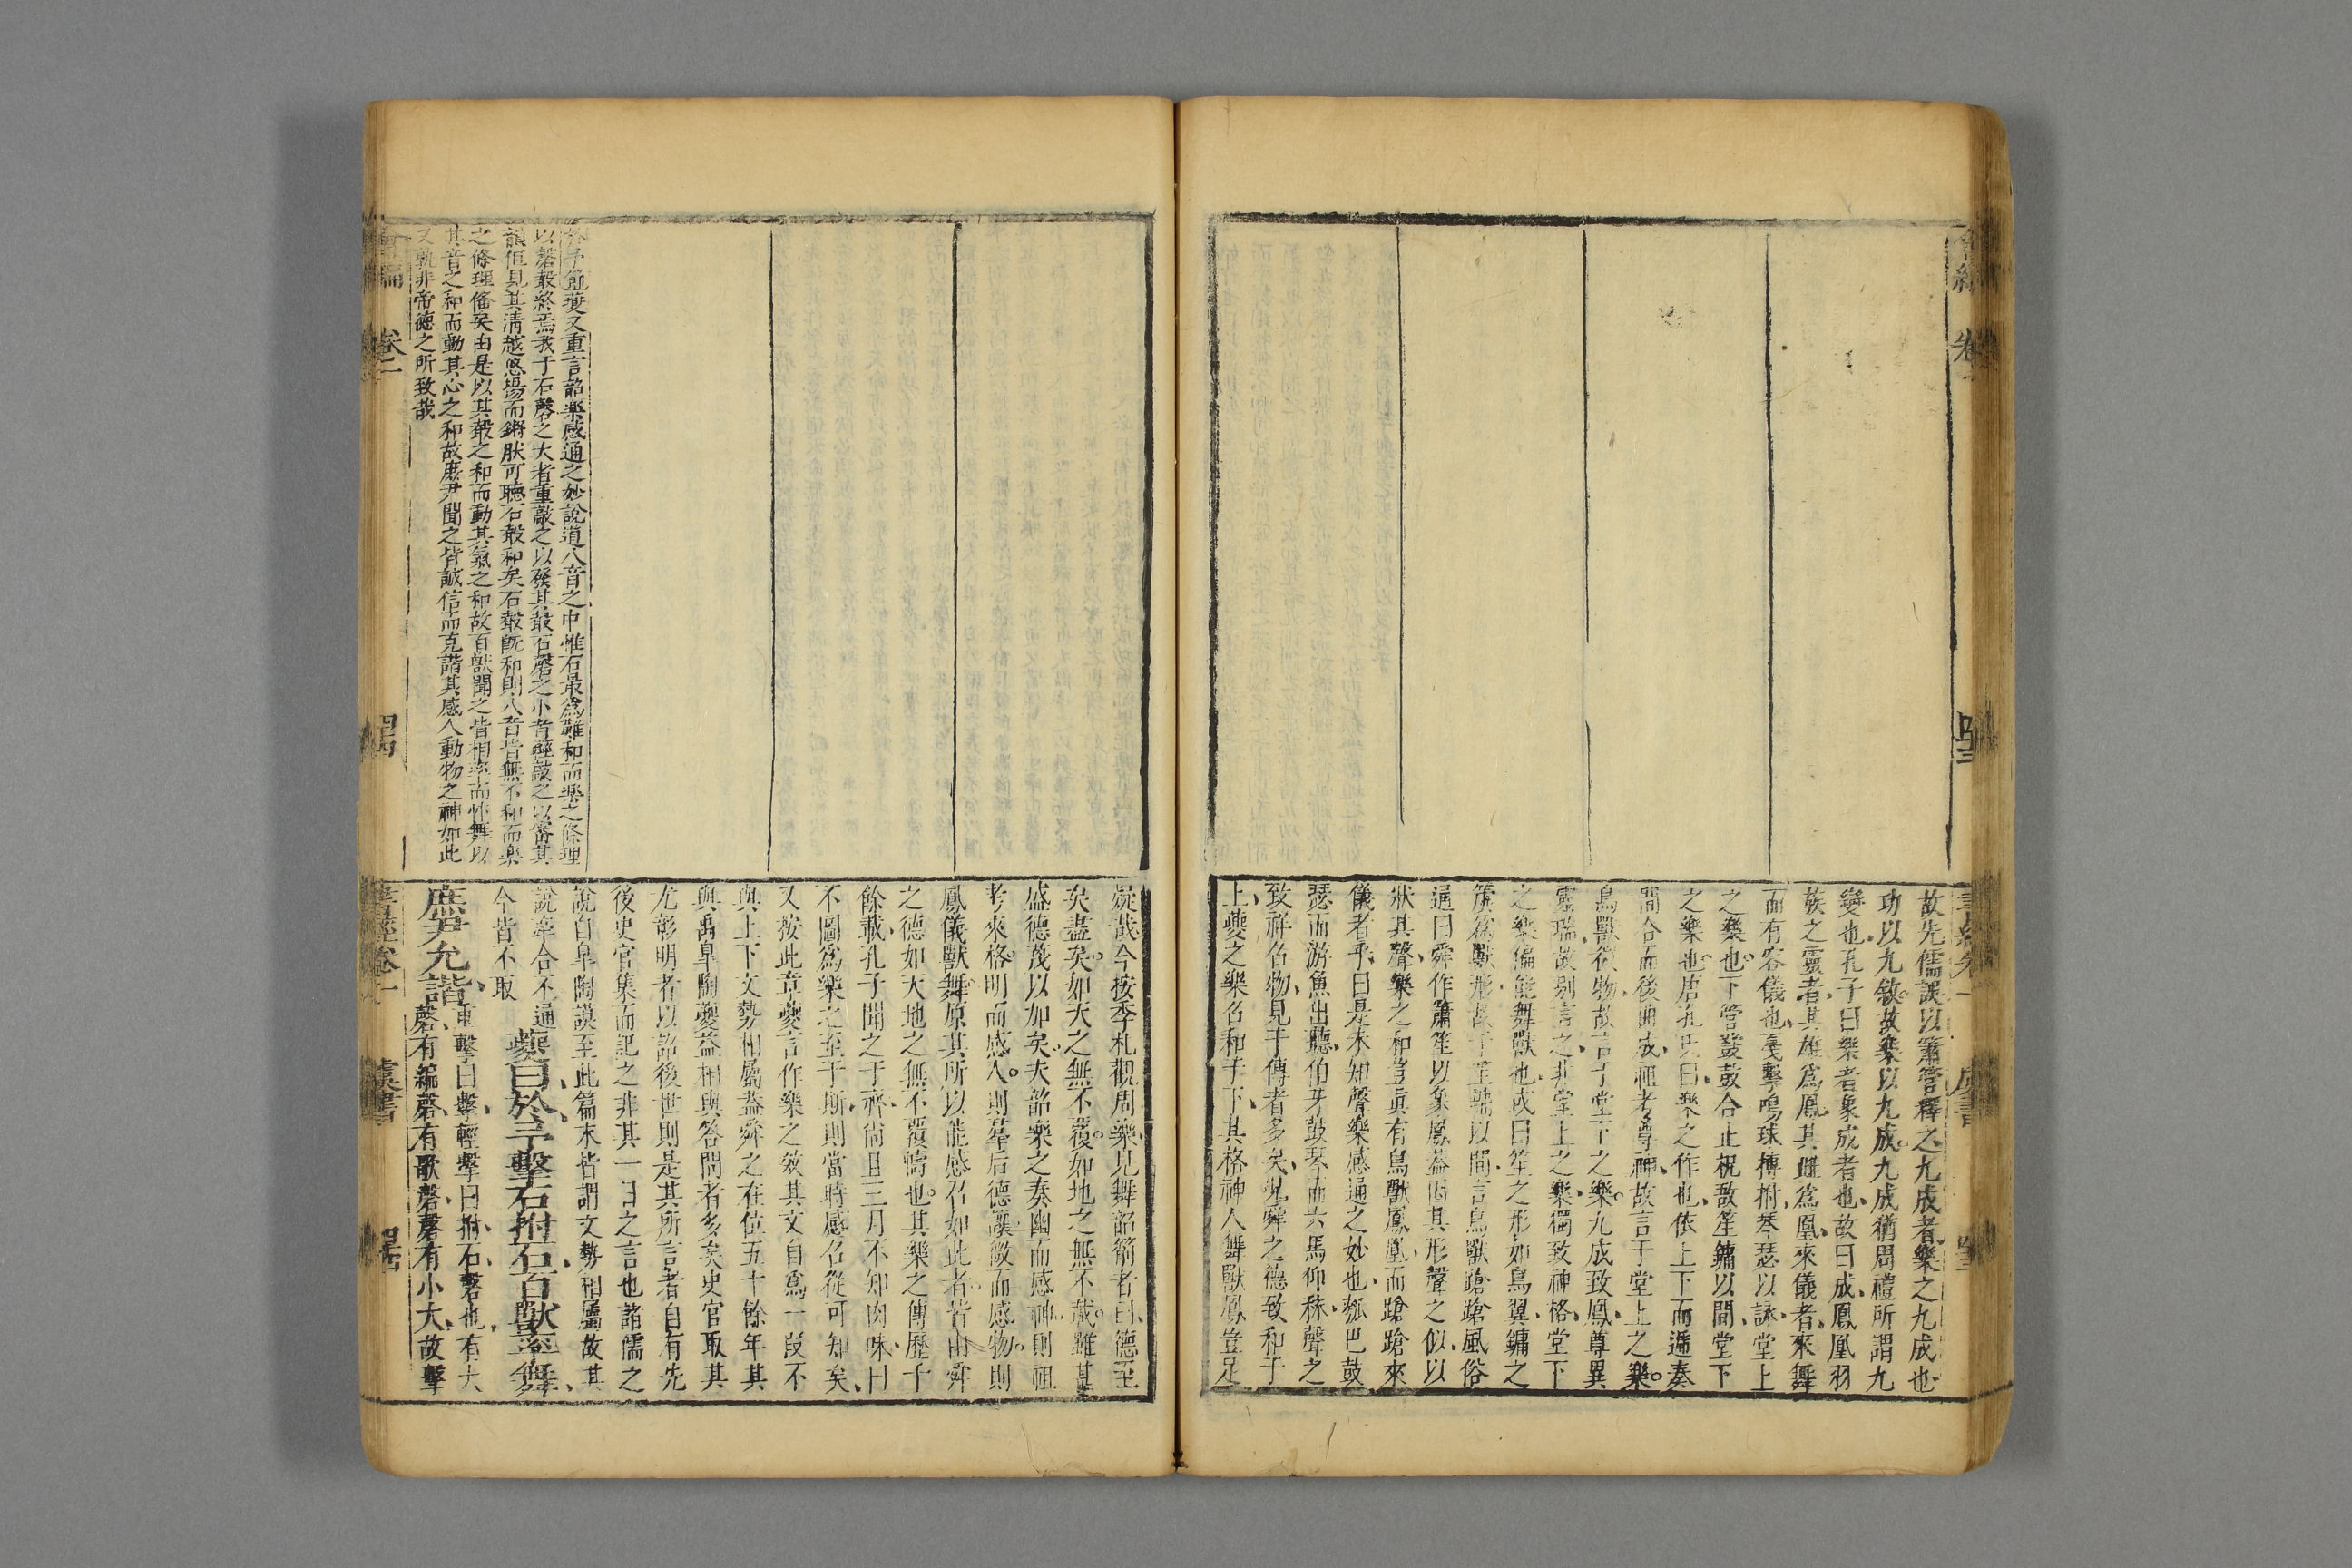 故先儒誤以簫管釋之九成者樂之九成也
功以九敘故樂以九成九成猶周禮所謂九
變也孔子曰樂者象成者也故曰成鳳凰羽
族之靈者其雄為鳳其雌為凰來儀者來舞
而有容儀也戛擊鳴球搏拊琴瑟以詠堂上
之樂也下管鼗鼓合止柷敔笙鏞以間堂下
之樂也唐孔氏曰樂之作也依上下而遞奏
間合而後曲成祖考尊神故言于堂上之樂
鳥獸微物故言于堂下之樂九成致鳳尊異
靈瑞故別言之非堂上之樂獨致神格堂下
之樂偏能舞獸也或曰笙之形如鳥翼鏞之
簴為獸形故于笙鏞以間言鳥獸蹌蹌風俗
通曰舜作簫笙以象鳳蓋因其形聲之似以
狀其聲樂之和豈真有鳥獸鳳凰而蹌蹌來
儀者乎曰是未知聲樂感通之妙也瓠巴鼓
瑟而游魚出聽伯牙鼓琴而六馬仰秣聲之
致祥召物見于傳者多矣況舜之德致和于
上夔之樂召和于下其格神人舞獸鳳豈足
疑哉今按季札觀周樂見舞韶箾者曰德至
矣盡矣如天之無不覆如地之無不載雖甚
盛德蔑以加矣夫韶樂之奏幽而感神則祖
考來格明而感人則羣后德讓微而感物則
鳳儀獸舞原其所以能感召如此者皆由舜
之德如天地之無不覆幬也其樂之傳歷千
餘載孔子聞之于齊尚且三月不知肉味曰
不圖為樂之至于斯則當時感召從可知矣
又按此章夔言作樂之效其文自為一段不
與上下文勢相屬蓋舜之在位五十餘年其
與禹皐陶夔益相與答問者多矣史官取其
尤彰明者以詔後世則是其所言者自有先
後史官集而記之非其一日之言也諸儒之
說自皐陶謨至此篇末皆謂文勢相屬故其
說牽合不通
今皆不取
夔曰於予擊石拊石百獸率舞
庶尹允諧
重擊曰擊輕擊曰拊石磬也有大
磬有編磬有歌磬磬有小大故擊
於予節夔又重言韶樂感通之妙說道八音之中惟石最為難和而樂之條理
以磬聲終焉我于石磬之大者重敲之以發其聲石磬之小者輕敲之以審其
韻但見其清越悠揚而鏘然可聽石聲和矣石聲既和則八音皆無不和而樂
之條理備矣由是以其聲之和而動其氣之和故百獸聞之皆相率而怀舞以
其音之和而動其心之和故庶尹聞之皆誠信而克諧其感人動物之神如此
又孰非帝德之所致哉
卷一
書經卷一
虞書